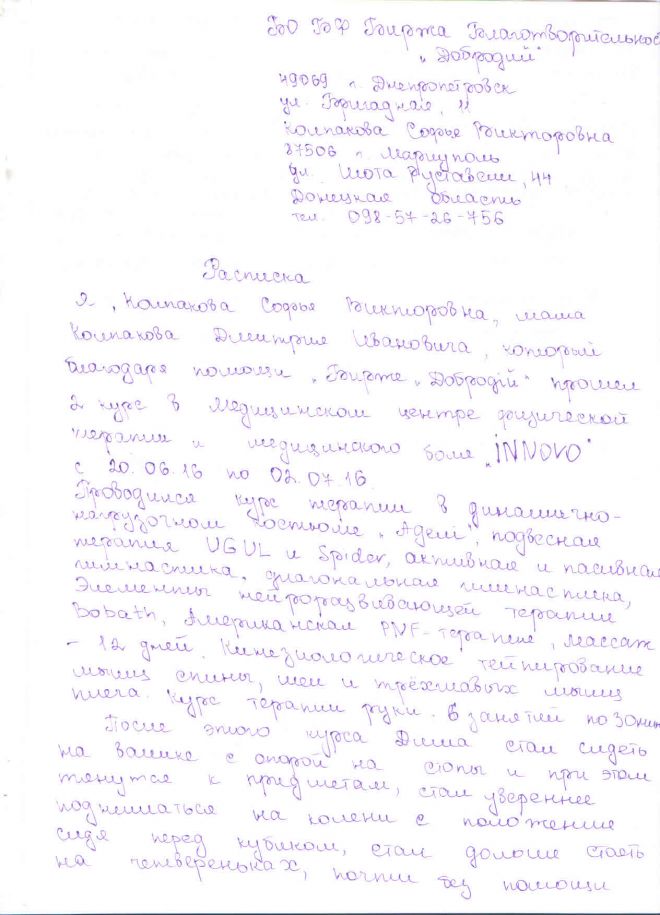 БО БФ Биржа Благотворительнос
"Добродий"
49069 г. Днепропетровск
ул. Бригадная, 11
Колпакова Софье Викторовна
87506 г. Мариуполь
ул. Шота Руставели, 44
Донецкая область
тел. 098-57-26-756
Расписка
Я, Колпакова Софья Викторовна, мама
Колпакова Дмитрия Ивановича, который
благодаря помощи "Бирже "Добродій" прошел
2 курс в Медицинском центре физической
терапии и медицинского боля "iNNOVO"
с 20.06.16 по 02.07.16.
Проводился курс терапии в динамично-
нагрузочном костюме "Аделі", подвесная
терапия UGUL и Spider, активная и пасивная
гимнастика, диагональная гимнастика,
Элементы нейроразвивающей терапии
Bobath, Американская PNF-терапие, Массаж
- 12 дней. Кинезиологическое тейпирование
мышц спины, шеи и трёхглавых мышц
плеча. Курс терапии руки. 6 занятий по 30 мин
После этого курса Дима стал сидеть
на валике с опорой на стопы и при этом
тянутся к предметам, стал увереннее
подниматься на колени с положение
сидя перед кубиком, стал дольше стаять
на четвереньках, почти без помощи